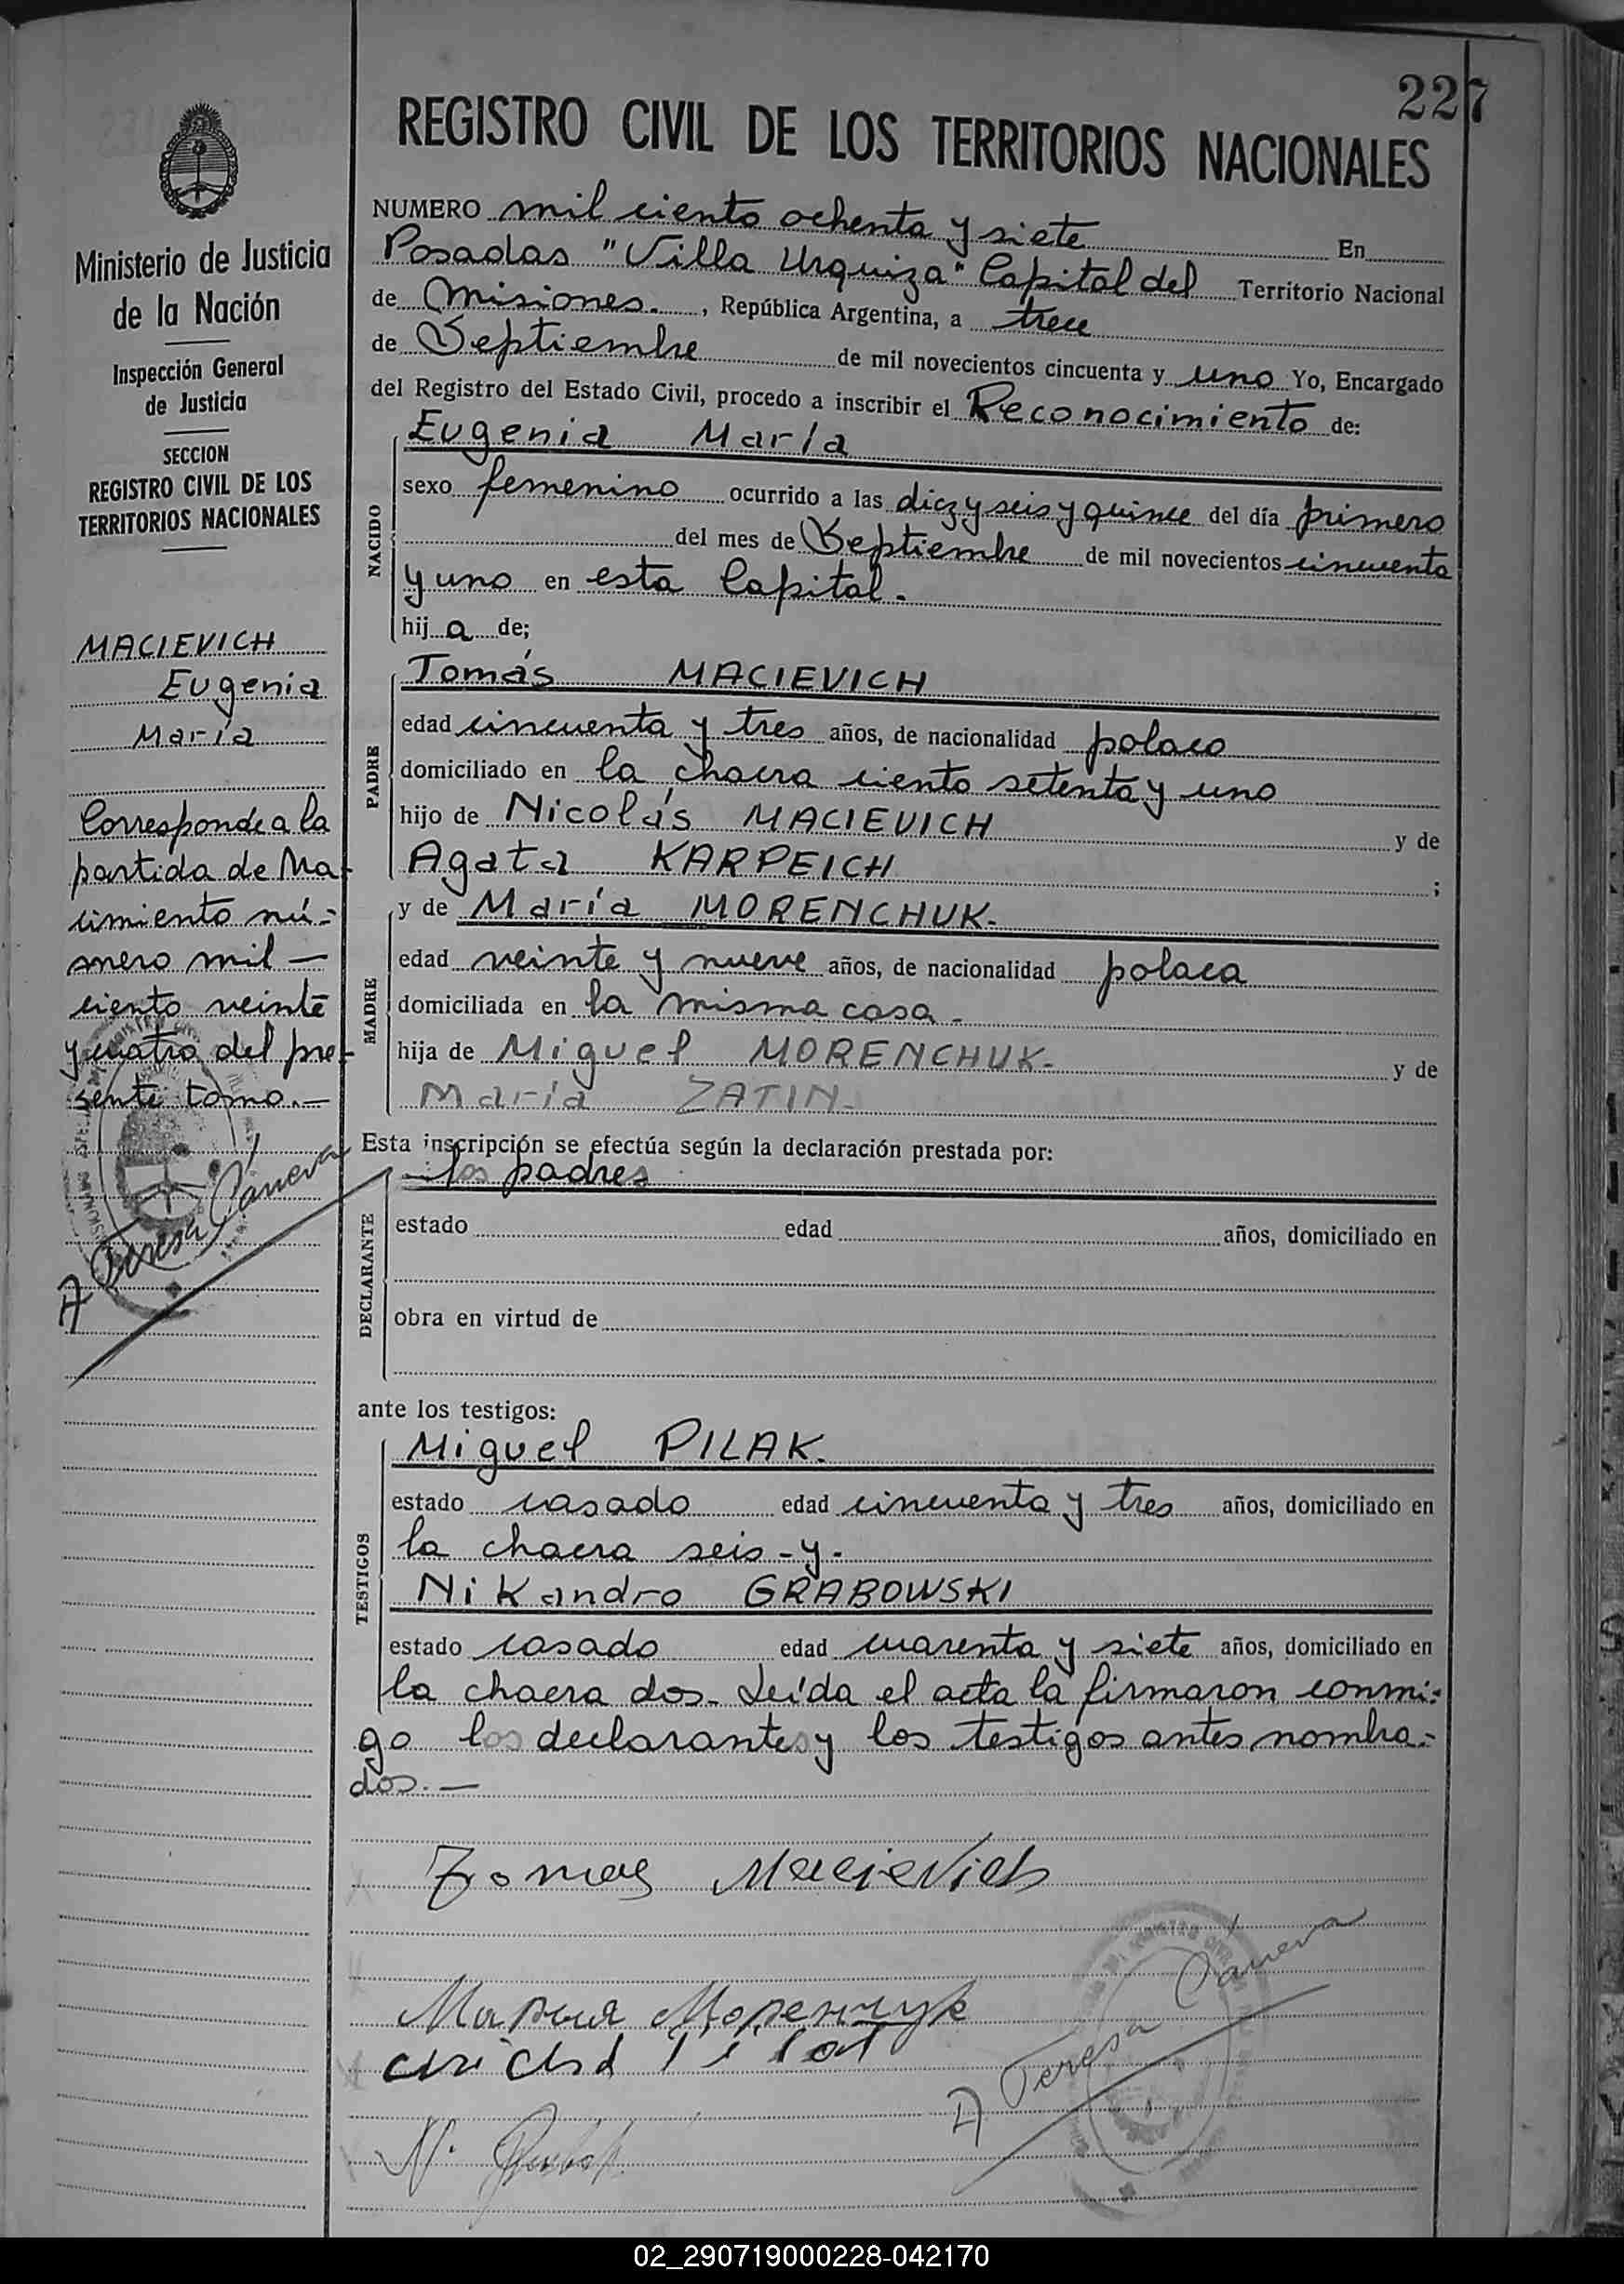 227
REGISTRO CIVIL DE LOS TERRITORIOS NACIONALES
Ministerio de Justicia
de la Nación
Inspección General
de Justicia
SECCION
REGISTRO CIVIL DE LOS
TERRITORIOS NACIONALES
MACIEVICH
Eugenia
María
Corresponde a la
partida de Na-
cimiento nú-
mero mil —
ciento veinte
y cuatro del pre-
sente tomo.—
A Teresa Cáneva
NUMERO mil ciento ochenta y siete En
Posadas "Villa Urquiza" Capital del Territorio Nacional
de Misiones. , República Argentina, a trece
de Septiembre de mil novecientos cincuenta y uno Yo, Encargado
del Registro del Estado Civil, procedo a inscribir el Reconocimiento de:
NACIDO
Eugenia María
sexo femenino ocurrido a las diez y seis y quince del día primero
del mes de Septiembre de mil novecientos cincuenta
y uno en esta Capital.
hij a de;
PADRE
Tomás MACIEVICH
edad cincuenta y tres años, de nacionalidad polaco
domiciliado en la chacra ciento setenta y uno
hijo de Nicolás MACIEVICH y de
Agata KARPEICH ;
MADRE
y de María MORENCHUK.
edad veinte y nueve años, de nacionalidad polaca
domiciliada en la misma casa.
hija de Miguel MORENCHUK. y de
María ZATIN.
Esta inscripción se efectúa según la declaración prestada por:
DECLARANTE
los padres
estado edad años, domiciliado en
obra en virtud de
ante los testigos:
TESTIGOS
Miguel PILAK.
estado casado edad cincuenta y tres años, domiciliado en
la chacra seis-y-
Nikandro GRABOWSKI
estado casado edad cuarenta y siete años, domiciliado en
la chacra dos. Leída el acta la firmaron conmi-
go los declarantes y los testigos antes nombra-
dos.—
Tomas Macievich
A Teresa Cáneva
02_290719000228-042170